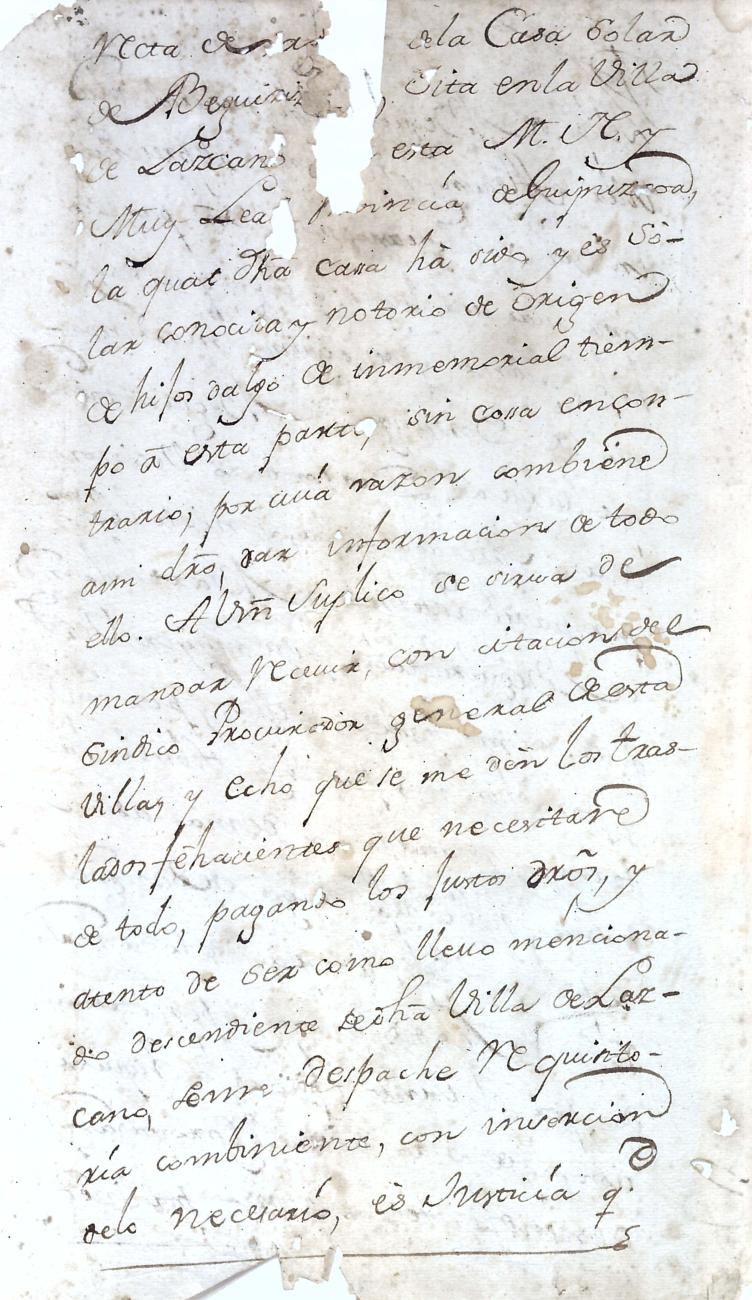 recta de dela Casa Solar
de Beguiriz, Sita en la Villa
de Lazcano esta M. N. y
Muy Leal Provincia de Guipuzcoa,
la qual dhã casa hà sido y és só-
lar conocida y notorio de origen
de hijos dalgo de inmemorial tiem-
po à esta parte, sin cossa encon-
trario, por cuiá razon combiene
ami drõ, dar informacion de todo
ello. A Vm̃ Suplico se sirva de
mandar recivir, con citacion del
Sindico Procurador general de esta
Villa, y echo que se me dèn los tras-
lados fehacientes que necesitare
de todo, pagando los justos drõs, y
atento de ser como llevo menciona-
do descendiente de dhã Villa de Laz-
cano, seme despache requisito-
ría combiniente, con inserción
delo necesarió, és Justicía q.